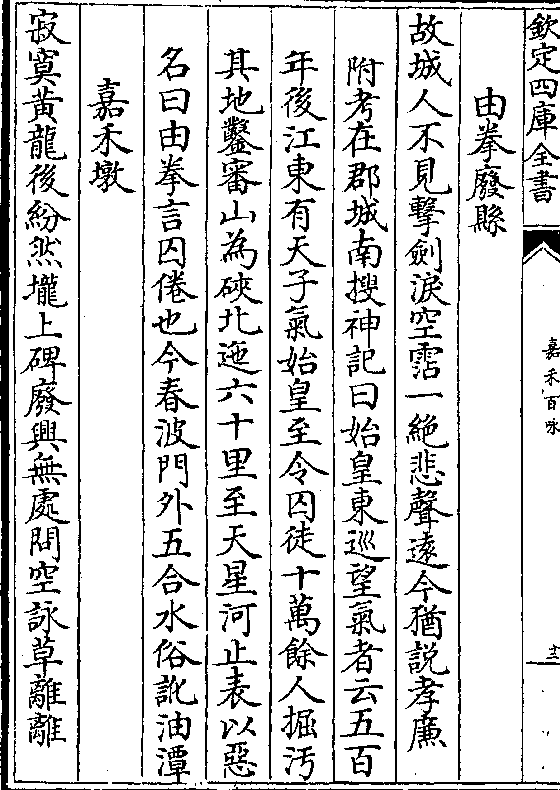 欽定四庫全書
嘉禾百咏
十三
由拳廢縣
故城人不見擊劍淚空霑一絶悲聲逺今猶説孝廉
附考在郡城南搜神記曰始皇東巡望氣者云五百
年後江東有天子氣始皇至令囚徒十萬餘人掘汚
其地鑿審山為硤北迤六十里至天星河止表以惡
名曰由拳言囚倦也今春波門外五合水俗訛油潭
嘉禾墩
寂寞黄龍後紛然壠上碑廢興無處問空詠草離離